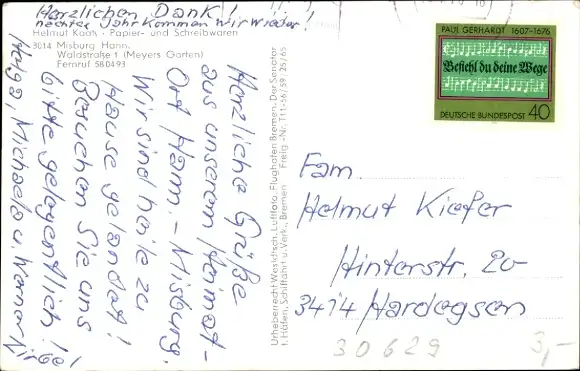 Herzlichen Dank!
nächstes Jahr kommen wir wieder!
Helmut Kaats · Papier- und Schreibwaren
3014 Misburg Hann.
Waldstraße 1 (Meyers Garten)
Fernruf 580493
Herzliche Grüße
aus unserem Heimat-
Ort Hann.-Misburg.
Wir sind heile zu
Hause gelandet!
Besuchen Sie uns
bitte gelegentlich!
Helga, Michaela u. Werner
Urheberrecht Westdtsch. Luftfoto, Flughafen Bremen, Der Senator
f. Häfen, Schiffahrt u. Verk., Bremen Freig.-Nr. T11-56/59/25/65
PAUL GERHARDT 1607-1676
Befiehl du deine Wege
DEUTSCHE BUNDESPOST 40
Fam.
Helmut Kiefer
Hinterstr. 20
3414 Hardegsen
30629
3,-